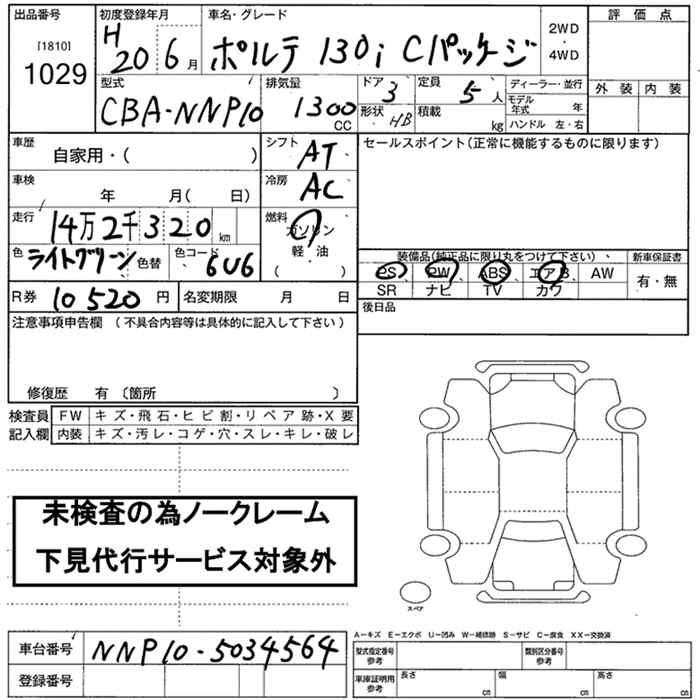 出品番号 初度登録年月 車名・グレード 2WD・4WD 評価点
[1810] 1029 H 20 6月 ポルテ 130i Cパッケージ
型式 排気量 ドア 3 定員 5人 ディーラー・並行 外装 内装
CBA-NNP10 1300 CC 形状 HB 積載 kg モデル年式 年
ハンドル 左・右
車歴 自家用・( ) シフト AT セールスポイント(正常に機能するものに限ります)
車検 年 月( 日) 冷房 AC
走行 14万2千320km 燃料 ガソリン
軽・油
( )
色 ライトグリーン 色替 色コード 6U6
装備品(純正品に限り丸をつけて下さい) 新車保証書
PS PW ABS エアB AW 有・無
SR ナビ TV カワ
R券 10520円 名変期限 月 日 後日品
注意事項申告欄 (不具合内容等は具体的に記入して下さい)
修復歴 有 〔箇所 〕
検査員 FW キズ・飛石・ヒビ割・リペア跡・X要
記入欄 内装 キズ・汚レ・コゲ・穴・スレ・キレ・破レ
未検査の為ノークレーム
下見代行サービス対象外
スペア
A-キズ E-エクボ U-凹み W-補修跡 S-サビ C-腐食 XX-交換済
車台番号 NNP10-5034564
型式指定番号 参考 類別区分番号 参考
登録番号
車庫証明用 参考 長さ cm 幅 cm 高さ cm